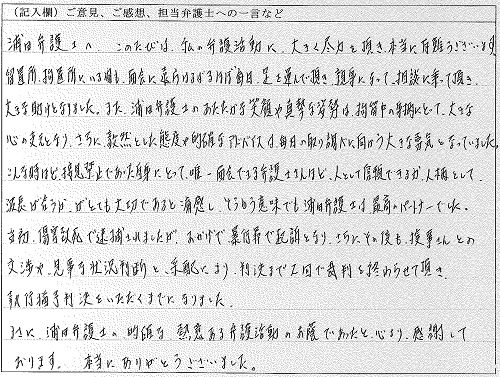 （記入欄）ご意見、ご感想、担当弁護士への一言など
浦田弁護士へ このたびは、私の弁護活動に、大きく尽力を頂き、本当に有難うございます。
留置所、拘置所にいる間も、面会に来られるかぎりほぼ毎日、足を運んで頂き、親身になって、相談に乗って頂き、
大きな助けとなりました。また、浦田弁護士のあたたかな笑顔や真摯な姿勢は、拘留中の手前にとって、大きな
心の支えとなり、さらに、毅然とした態度や的確なアドバイスは、毎日の取り調べに向かう大きな勇気となっていました。
こんな時ほど、接見禁止であった自身にとって、唯一面会できる弁護士さんほど、人として信頼できるか、人格として、
波長が合うか、がとても大切であると痛感し、そういう意味でも浦田弁護士は最高のパートナーでした。
当初、傷害致死で逮捕されましたが、おかげで暴行罪で起訴となり、さらに、その後も、検事さんとの
交渉や、見事な状況判断と、采配により、判決まで2回で裁判を終わらせて頂き、
執行猶予判決をいただくまでになりました。
まさに、浦田弁護士の、的確な、熱意ある弁護活動のお蔭であったと、心より、感謝して
おります。 本当にありがとうございました。